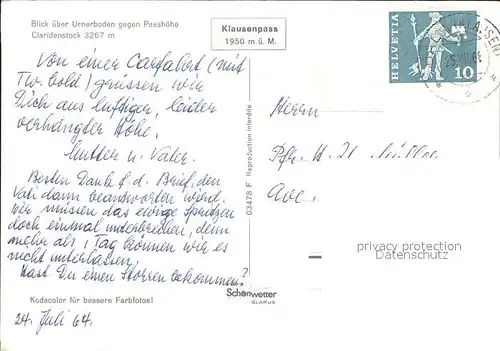 Blick über Urnerboden gegen Passhöhe
Claridenstock 3267 m
Klausenpass
1950 m ü. M.
HELVETIA
10
Von einer Carfahrt (mit
Tw. bold) grüssen wir
Dich aus luftiger, leider
verhängter Höhe.
Mutter u. Vater.
Besten Dank f. d. Brief, den
Vati dann beantworten wird.
Wir müssen das ewige Spritzen
doch einmal unterbrechen, denn
mehr als 1 Tag können wir es
nicht unterlassen.
Hast Du einen Storren bekommen?
24. Juli 64.
Kodacolor für bessere Farbfotos!
03478 F Reproduction interdite
Schönwetter
GLARUS
Herrn
Pfr. H. Müller
privacy protection
Datenschutz